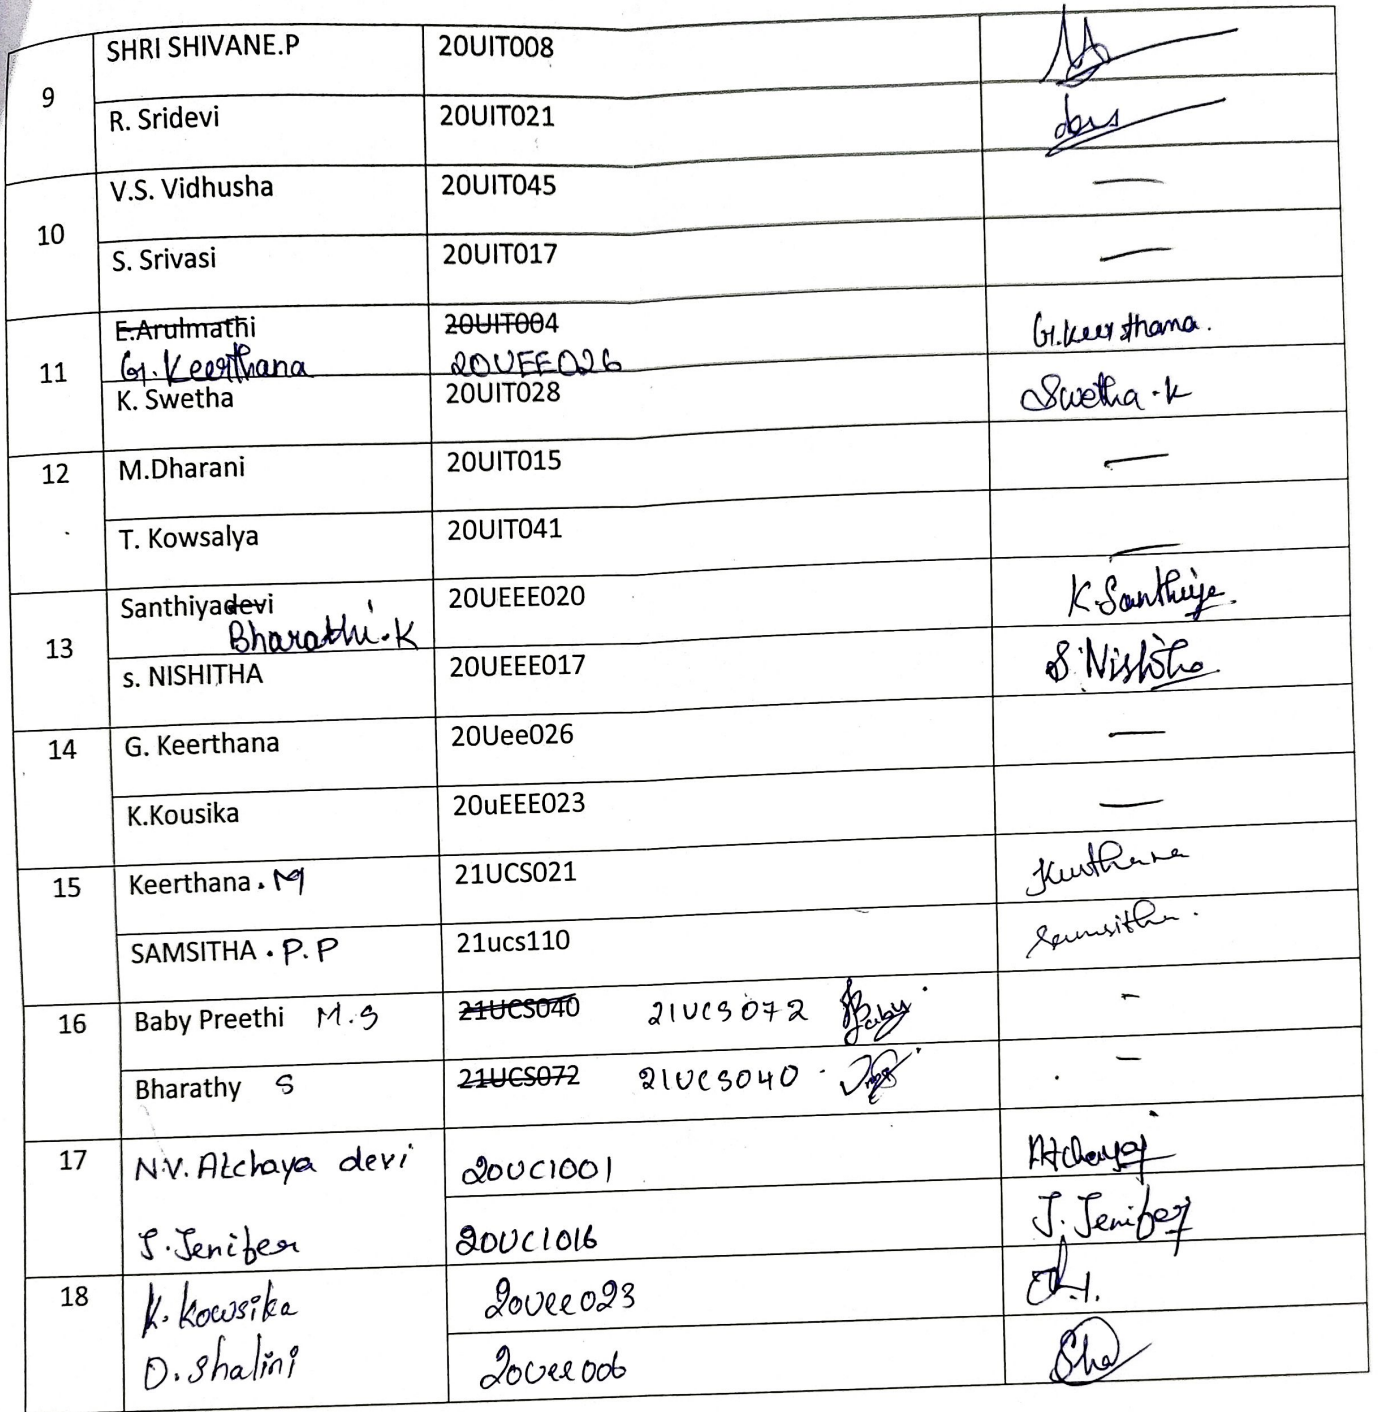 9 SHRI SHIVANE.P 20UIT008
R. Sridevi 20UIT021
10 V.S. Vidhusha 20UIT045 —
S. Srivasi 20UIT017 —
11 E.Arulmathi 20UIT004 G.Keerthana.
G. Keerthana 20UEE026
K. Swetha 20UIT028 Swetha.K
12 M.Dharani 20UIT015 —
T. Kowsalya 20UIT041 —
13 Santhiyadevi 20UEEE020 K.Santhiya.
Bharathi.K
s. NISHITHA 20UEEE017 S.Nishitha
14 G. Keerthana 20Uee026 —
K.Kousika 20uEEE023 —
15 Keerthana.M 21UCS021 Keerthana
SAMSITHA.P.P 21ucs110 Samsitha.
16 Baby Preethi M.S 21UCS040 21UCS072 Baby -
Bharathy S 21UCS072 21UCS040 -
17 N.V.Atchaya devi 20UCI001 Atchaya
J.Jenifer 20UCI016 J.Jenifer
18 K.Kowsika 20uee023
D.Shalini 20uee006 Sha